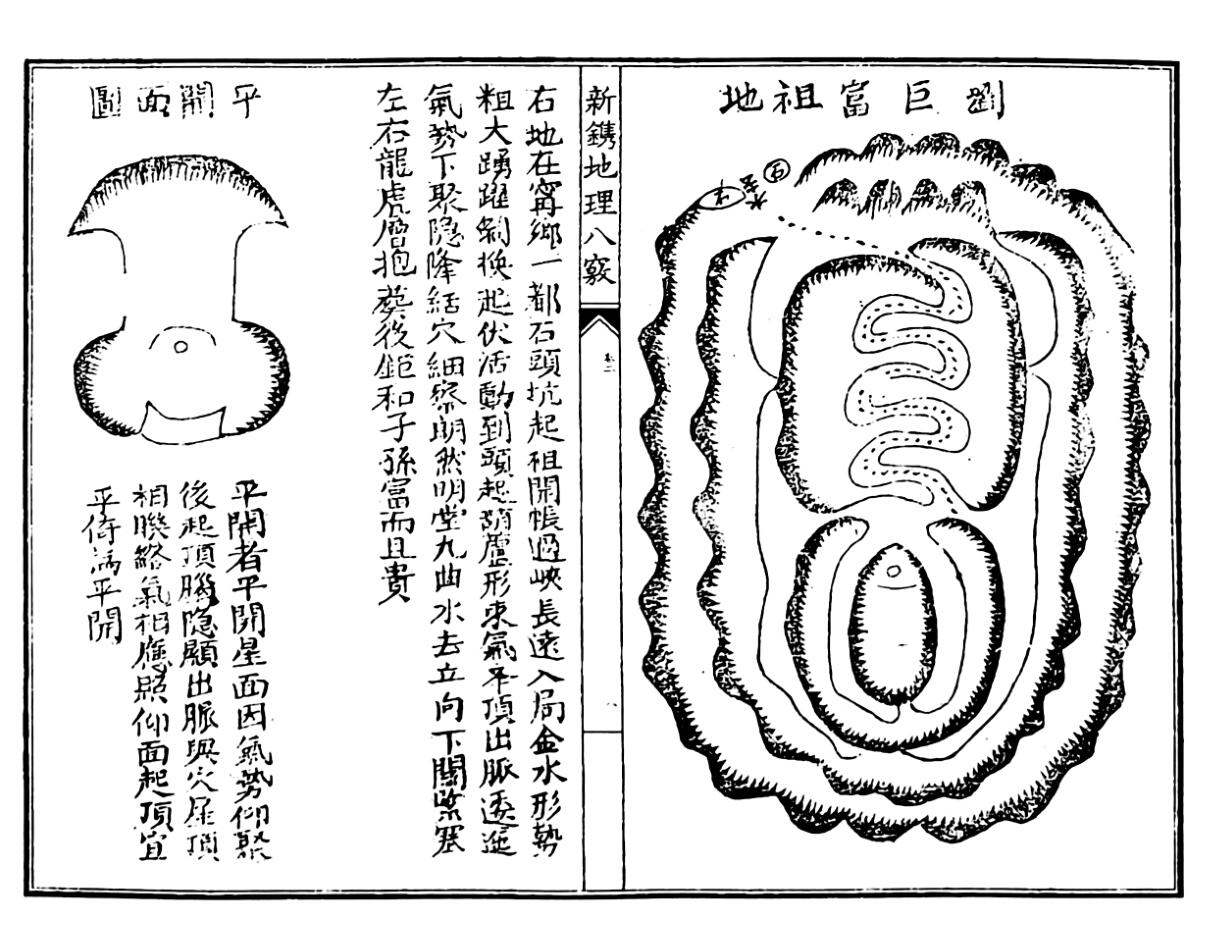 劉巨富祖地
水口
新鐫地理八竅
卷三
右地在甯鄉一都石頭坑起祖開帳過峽長遠入局金水形勢
粗大踴躍剝換起伏活動到頭起葫蘆形來氣平頂出脈逶迤
氣勢下聚隱降結穴細察朗然明堂九曲水去立向下關緊塞
左右龍虎層抱葬後鉅和子孫富而且貴
平開面圖
平開者平開星面因氣勢仰聚
後起頂腦隱顯出脈與穴星頂
相聯絡氣相應照仰面起頂宜
平倚為平開